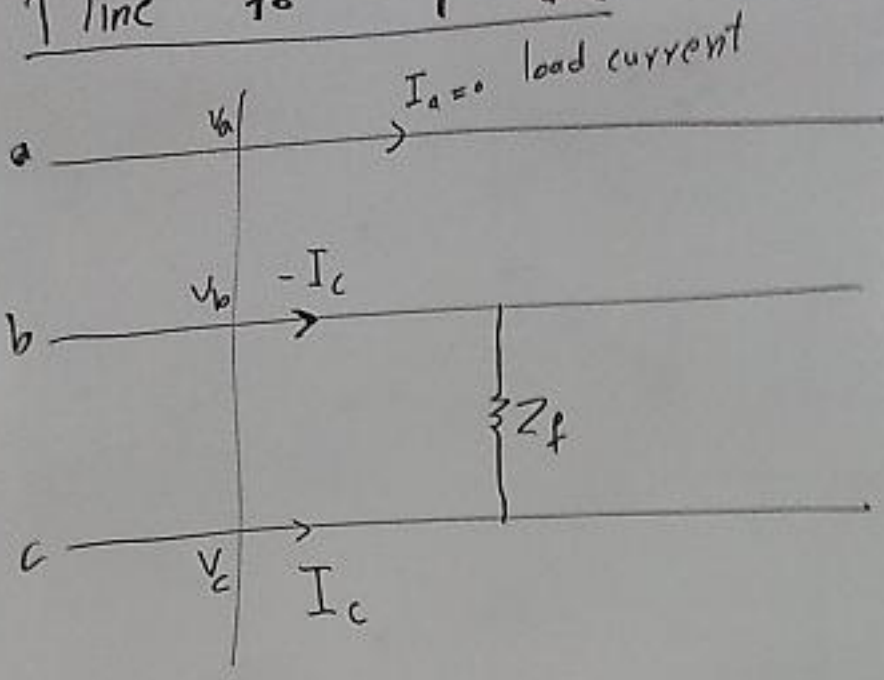 line to
Iₐ = 0 load current
a Vₐ
b V_b - I_c
Z_f
c V_c I_c